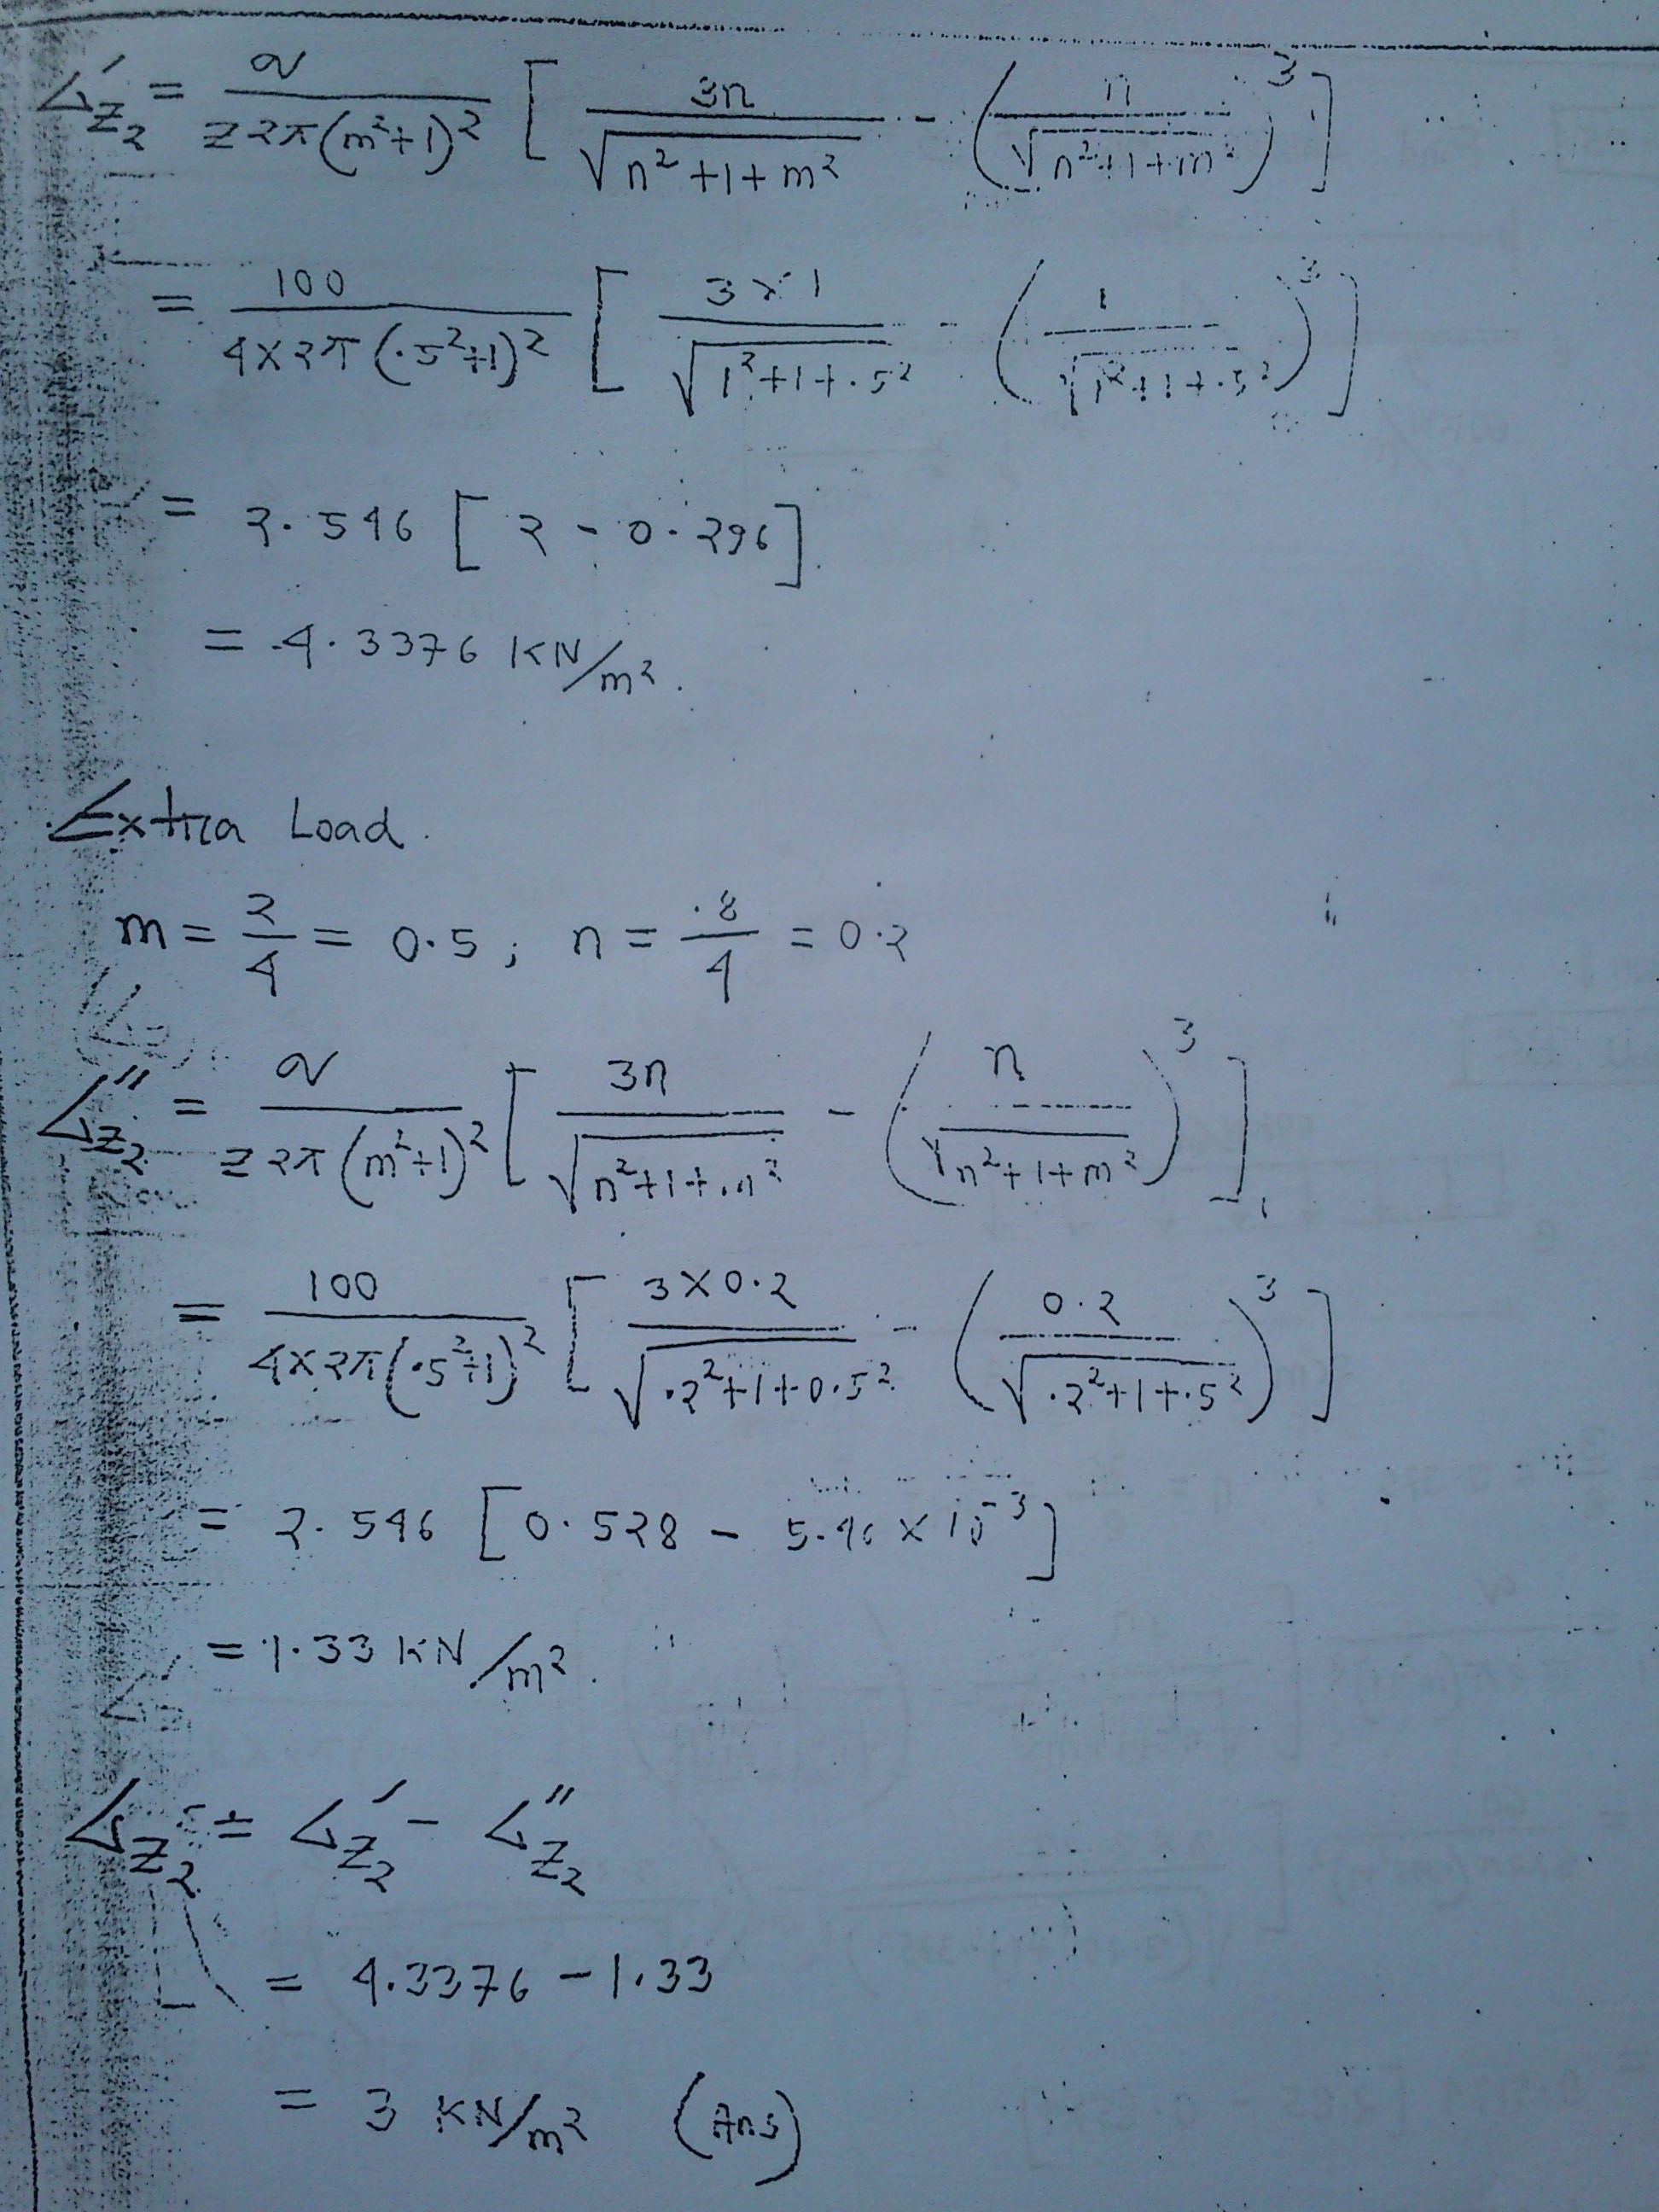 σ'z₂ = q / z2π(m²+1)² [ 3n / √(n²+1+m²) - ( n / √(n²+1+m²) )³ ]
= 100 / 4×2π(.5²+1)² [ 3×1 / √(1²+1+.5²) - ( 1 / √(1²+1+.5²) )³ ]
= 2.546 [ 2 - 0.296 ]
= 4.3376 KN/m².
Extra Load.
m = 2/4 = 0.5 ; n = .8/4 = 0.2
σ''z₂ = q / z2π(m²+1)² [ 3n / √(n²+1+m²) - ( n / √(n²+1+m²) )³ ]
= 100 / 4×2π(.5²+1)² [ 3×0.2 / √(.2²+1+0.5²) - ( 0.2 / √(.2²+1+.5²) )³ ]
= 2.546 [ 0.528 - 5.46×10⁻³ ]
= 1.33 KN/m².
σz₂ = σ'z₂ - σ''z₂
= 4.3376 - 1.33
= 3 KN/m² (Ans)